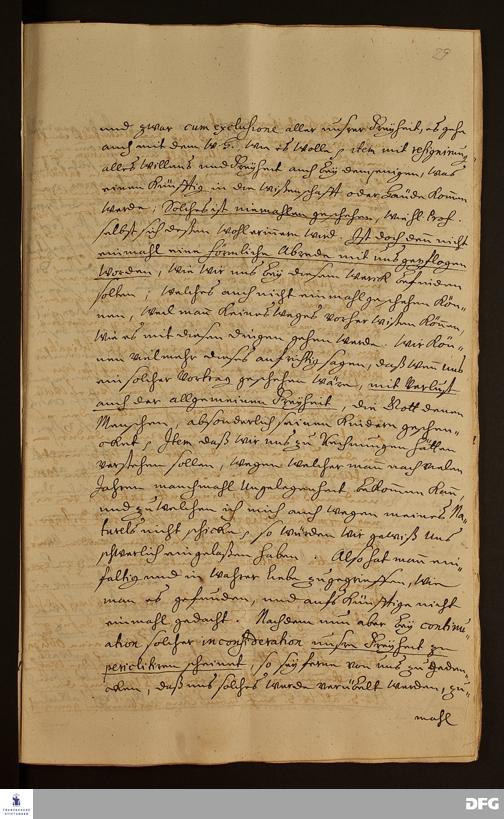 29
und zwar cum exclusione aller unsrer Freyheit, es gehe
auch mit dem W. E. wie es wolle, item mit resignirung
alles Willens und Freyheit auch bey demjenigen, was
einem Künfftig in die Wissenschafft oder Hände kommen
werde; Solches ist niemahlen geschehen, wie H. Prof.
selbst sich dessen wohl erinnern wird. Ist doch denn nicht
einmahl eine förmliche Abrede mit uns gepflogen
worden, wie wir uns bey diesem Werck befinden
solten; welches auch nicht einmahl geschehen kön-
nen, weil man keines weges vorher wissen können,
wie es mit diesen dingen gehen werde. Wir kön-
nen vielmehr dieses aufrichtig sagen, daß wen uns
ein solcher Vortrag geschehen wäre, mit Verlust
auch der allgemeinen Freyheit, die Gott denen
Menschen, absonderlich seinen Kindern geschen-
cket, Item daß wir uns zu Rechnungen hätten
verstehen sollen, wegen welcher man nach vielen
Jahren manchmahl Ungelegenheit bekommen kan,
und zu welchen ich mich auch wegen meines Na-
turels nicht schicke, so würden wir gewiß uns
schwerlich eingelaßen haben. Also hat man ein-
fältig und in wahrer Liebe zugegriffen, wie
man es gefunden, und aufs Künfftige nicht
einmahl gedacht. Nachdem nun aber bey continu-
ation solcher inconsideration unsre Freyheit zu
periclitiren scheinet, so sey ferne von uns zu geden-
cken, daß uns solches werde verübelt werden, zu-
mahl
FRANCKESCHE
STIFTUNGEN
DFG